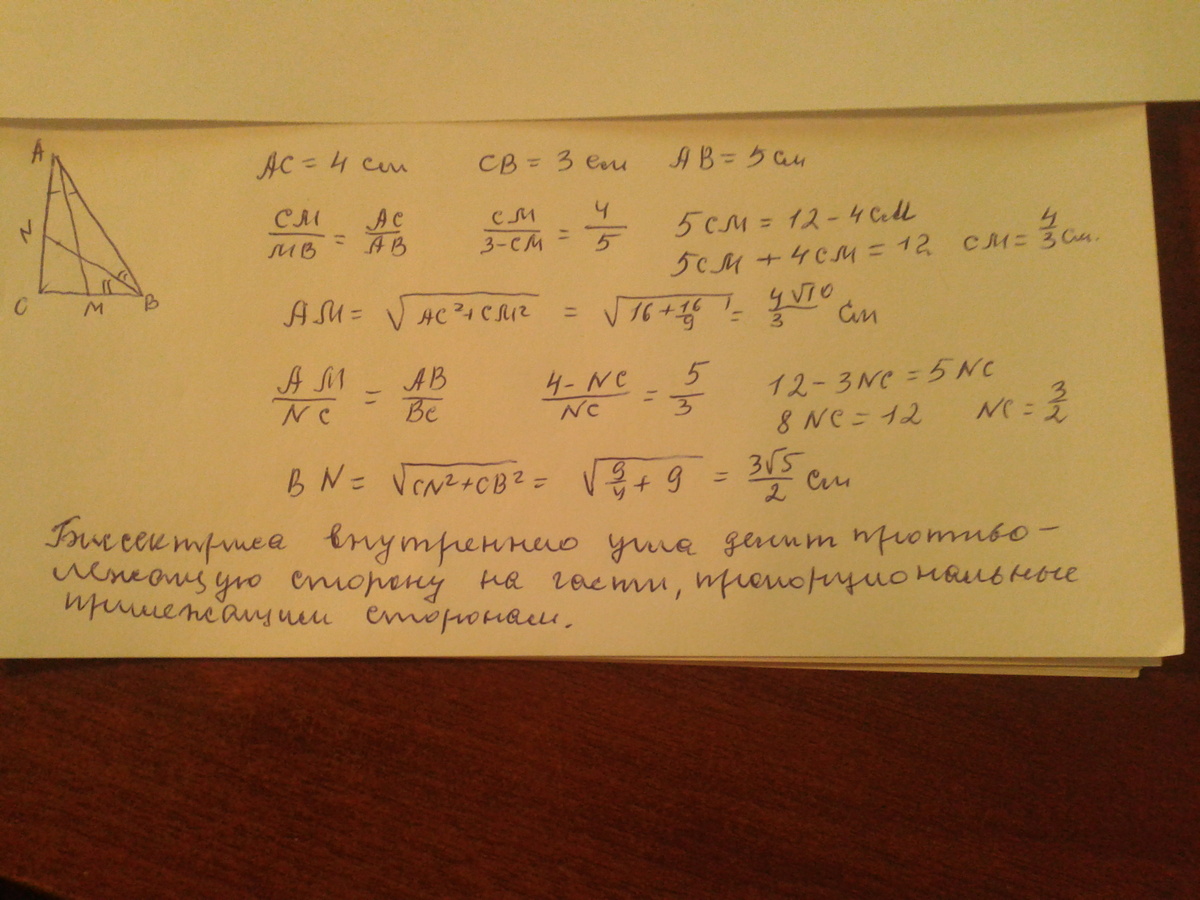 A
N
C M B
AC = 4 см CB = 3 см AB = 5 см
CM/MB = AC/AB CM/(3-CM) = 4/5 5CM = 12 - 4CM
5CM + 4CM = 12 CM = 4/3 см.
AM = √(AC²+CM²) = √(16 + 16/9) = 4√10/3 см
AM/NC = AB/BC (4-NC)/NC = 5/3 12 - 3NC = 5NC
8NC = 12 NC = 3/2
BN = √(CN²+CB²) = √(9/4 + 9) = 3√5/2 см
Биссектриса внутреннего угла делит противо-
лежащую сторону на части, пропорциональные
прилежащим сторонам.